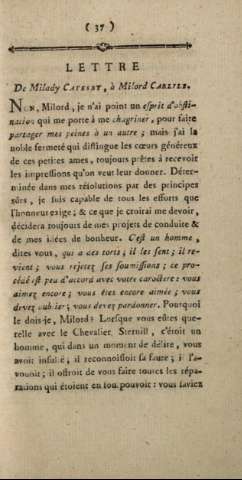 ( 37 )
LETTRE
De Milady CATESBY, à Milord CARLILE.
NON, Milord, je n'ai point un esprit d'obsti-
nation qui me porte à me chagriner, pour faire
partager mes peines à un autre ; mais j'ai la
noble fermeté qui distingue les cœurs généreux
de ces petites ames, toujours prêtes à recevoir
les impressions qu'on veut leur donner. Déter-
minée dans mes résolutions par des principes
sûrs, je suis capable de tous les efforts que
l'honneur exige ; & ce que je croirai me devoir,
décidera toujours de mes projets de conduite &
de mes idées de bonheur. C'est un homme,
dites vous, qui a des torts ; il les sent ; il re-
vient ; vous rejetez ses soumissions ; ce pro-
cédé est peu d'accord avec votre caractere : vous
aimez encore ; vous êtes encore aimée ; vous
devez oublier ; vous devez pardonner. Pourquoi
le dois-je, Milord ? Lorsque vous eutes que-
relle avec le Chevalier, Sternill, c'étoit un
homme, qui dans un moment de délire, vous
avoit insulté ; il reconnoissoit sa faute ; il l'a-
vouoit ; il offroit de vous faire toutes les répa-
rations qui étoient en son pouvoir : vous saviez